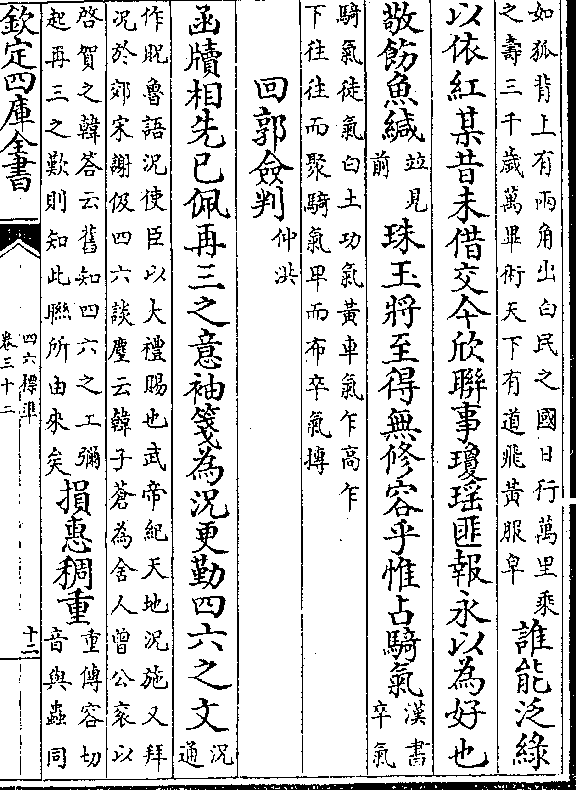 如狐背上有兩角出白民之國日行萬里乘
之壽三千歲萬畢術天下有道飛黃服皁
誰能泛綠
以依紅某昔未借交今欣聯事瓊瑤匪報永以為好也
敬飭魚緘
並見
前
珠玉將至得無修容乎惟占騎氣
漢書
卒氣
騎氣徒氣白土功氣黃車氣乍高乍
下往往而聚騎氣卑而布卒氣摶
回郭僉判
仲洪
函牘相先已佩再三之意袖箋為況更勤四六之文
況
通
作貺魯語況使臣以大禮賜也武帝紀天地況施又拜
況於郊宋謝伋四六談麈云韓子蒼為舍人曾公袞以
啓賀之韓答云舊知四六之工彌
起再三之歎則知此聯所由來矣
損惠稠重
重傳容切
音與蟲同
欽定四庫全書
四六標準
卷三十二
十二